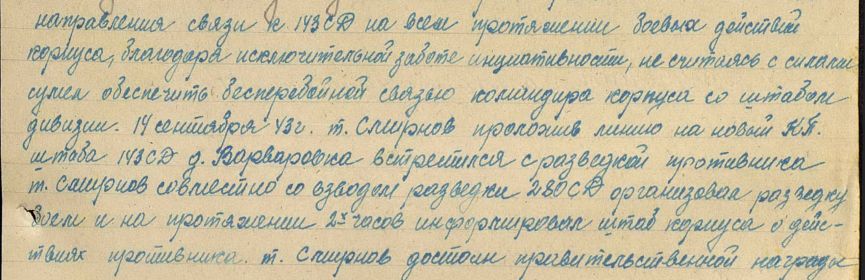 направления связи к 143 СД на всем протяжении боевых действий
корпуса, благодаря исключительной заботе инциативности, не считаясь с силами
сумел обеспечить бесперебойной связью командира корпуса со штабом
дивизии. 14 сентября 43 г. т. Смирнов проложив линию на новый К.П.
штаба 143 СД д. Варваровка встретился с разведкой противника
т. Смирнов совместно со взводом разведки 280 СД организовал разведку
боем и на протяжении 2х часов информировал штаб корпуса о дейс-
твиях противника. т. Смирнов достоин правительственной награды